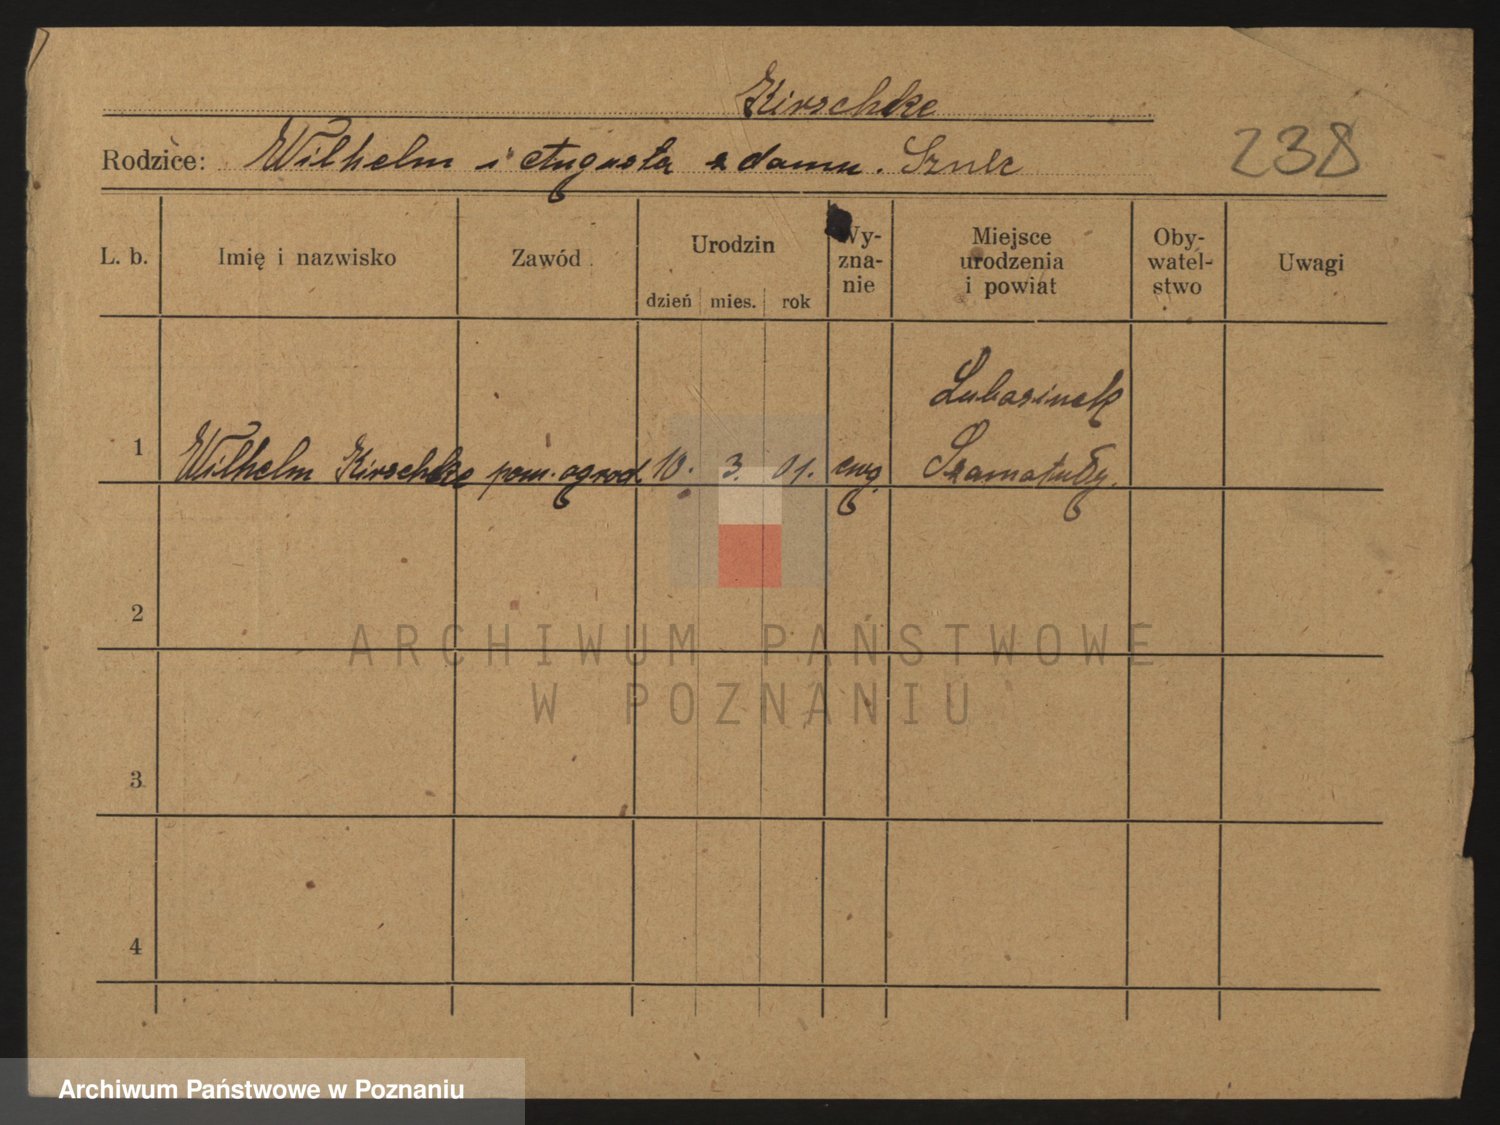 Kirschke
Rodzice: Wilhelm i Augusta z domu. Szulc
238
L. b. Imię i nazwisko Zawód Urodzin dzień mies. rok Wy-
zna-
nie Miejsce
urodzenia
i powiat Oby-
watel-
stwo Uwagi
Lubosinek
1 Wilhelm Kirschke pom. ogrod. 10. 3. 01. ewg. Szamotuły.
2
3
4
ARCHIWUM PAŃSTWOWE
W POZNANIU
Archiwum Państwowe w Poznaniu